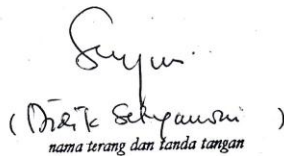 ( Didik Setyawini )
nama terang dan tanda tangan